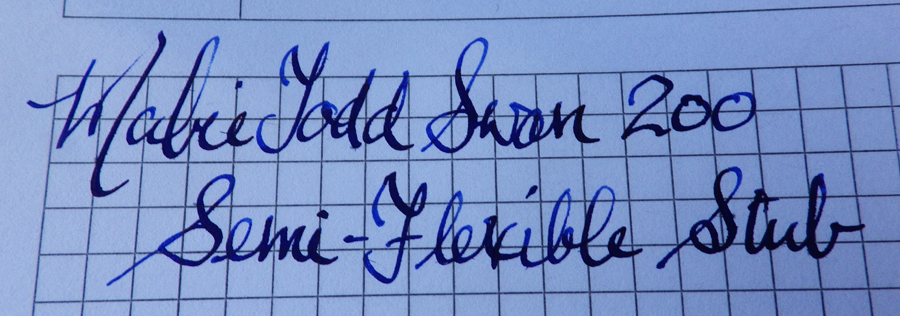 Mabie Todd Swan 200
Semi-Flexible Stub